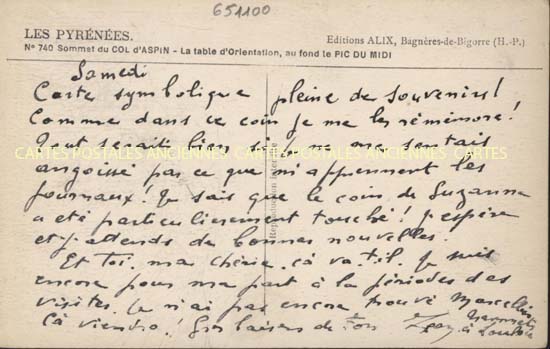 651100
LES PYRÉNÉES.
Editions ALIX, Bagnères-de-Bigorre (H.-P.)
Nº 740 Sommet du COL d'ASPIN - La table d'Orientation, au fond le PIC DU MIDI
Samedi
Carte symbolique pleine de souvenirs!
Comme dans ce coin je me les remémore!
Tout serait bien si je ne me sentais
CARTES POSTALES ANCIENNES CARTES POSTALES ANCIENNES CARTES
angoissé par ce que m'apprennent les
journaux! Je sais que le coin de Suzanne
a été particulièrement touché! J'espère
et j'attends de bonnes nouvelles.
Et toi, ma chérie, ça va-t-il. Je suis
encore pour ma part à la périodes des
visites. Je n'ai pas encore trouvé Marcellin
Ça viendra! Gros baisers de ton
à
Reproduction interdite